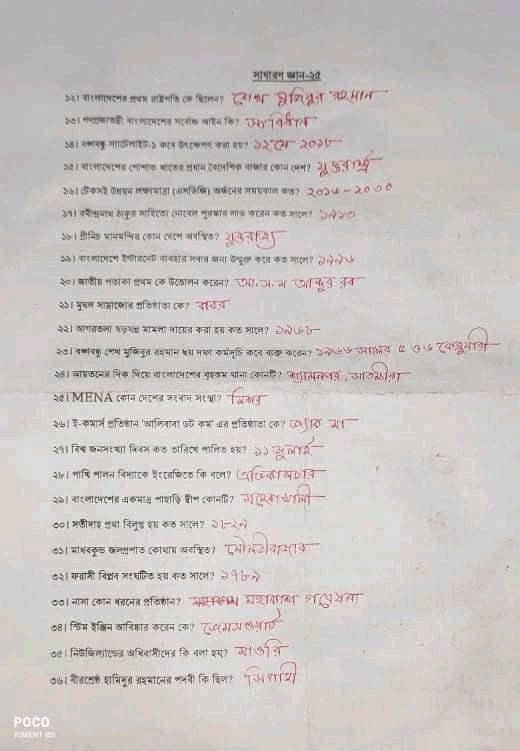 সাধারণ জ্ঞান-২৫
১২। বাংলাদেশের প্রথম রাষ্ট্রপতি কে ছিলেন? শেখ মুজিবুর রহমান
১৩। গণপ্রজাতন্ত্রী বাংলাদেশের সর্বোচ্চ আইন কি? সংবিধান
১৪। বঙ্গবন্ধু স্যাটেলাইট-১ কবে উৎক্ষেপণ করা হয়? ১২ মে ২০১৮
১৫। বাংলাদেশের পোশাক খাতের প্রধান বৈদেশিক বাজার কোন দেশ? যুক্তরাষ্ট্র
১৬। টেকসই উন্নয়ন লক্ষ্যমাত্রা (এসডিজি) অর্জনের সময়কাল কত? ২০১৬ – ২০৩০
১৭। রবীন্দ্রনাথ ঠাকুর সাহিত্যে নোবেল পুরস্কার লাভ করেন কত সালে? ১৯১৩
১৮। গ্রীনিচ মানমন্দির কোন দেশে অবস্থিত? যুক্তরাজ্য
১৯। বাংলাদেশে ইন্টারনেট ব্যবহার সবার জন্য উন্মুক্ত করে কত সালে? ১৯৯৬
২০। জাতীয় পতাকা প্রথম কে উত্তোলন করেন? আ. স. ম আব্দুর রব
২১। মুঘল সাম্রাজ্যের প্রতিষ্ঠাতা কে? বাবর
২২। আগরতলা ষড়যন্ত্র মামলা দায়ের করা হয় কত সালে? ১৯৬৮
২৩। বঙ্গবন্ধু শেখ মুজিবুর রহমান ছয় দফা কর্মসূচি কবে ব্যক্ত করেন? ১৯৬৬ সালের ৫ ও ৬ ফেব্রুয়ারী
২৪। আয়তনের দিক দিয়ে বাংলাদেশের বৃহত্তম থানা কোনটি? শ্যামনগর, সাতক্ষীরা
২৫। MENA কোন দেশের সংবাদ সংস্থা? মিশর
২৬। ই-কমার্স প্রতিষ্ঠান 'আলিবাবা ডট কম' এর প্রতিষ্ঠাতা কে? জ্যাক মা
২৭। বিশ্ব জনসংখ্যা দিবস কত তারিখে পালিত হয়? ১১ জুলাই
২৮। পাখি পালন বিদ্যাকে ইংরেজিতে কি বলে? এভিকালচার
২৯। বাংলাদেশের একমাত্র পাহাড়ি দ্বীপ কোনটি? মহেশখালী
৩০। সতীদাহ প্রথা বিলুপ্ত হয় কত সালে? ১৮২৯
৩১। মাধবকুন্ড জলপ্রপাত কোথায় অবস্থিত? মৌলভীবাজার
৩২। ফরাসী বিপ্লব সংঘটিত হয় কত সালে? ১৭৮৯
৩৩। নাসা কোন ধরনের প্রতিষ্ঠান? মহাকাশ গবেষনা
৩৪। স্টিম ইঞ্জিন আবিষ্কার করেন কে? জেমস ওয়াট
৩৫। নিউজিল্যান্ডের অধিবাসীদের কি বলা হয়? মাওরি
৩৬। বীরশ্রেষ্ঠ হামিদুর রহমানের পদবী কি ছিল? সিপাহী
POCO